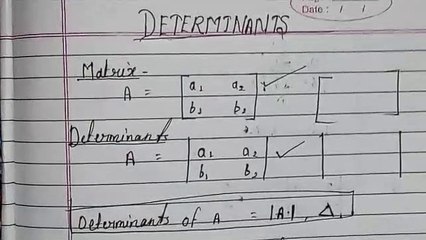 Date : / /
DETERMINANTS
Matrix -
A = [ a₁ a₂
b₁ b₂ ] ✓
Determinants
A = | a₁ a₂
b₁ b₂ | ✓
Determinants of A = |A|, Δ,